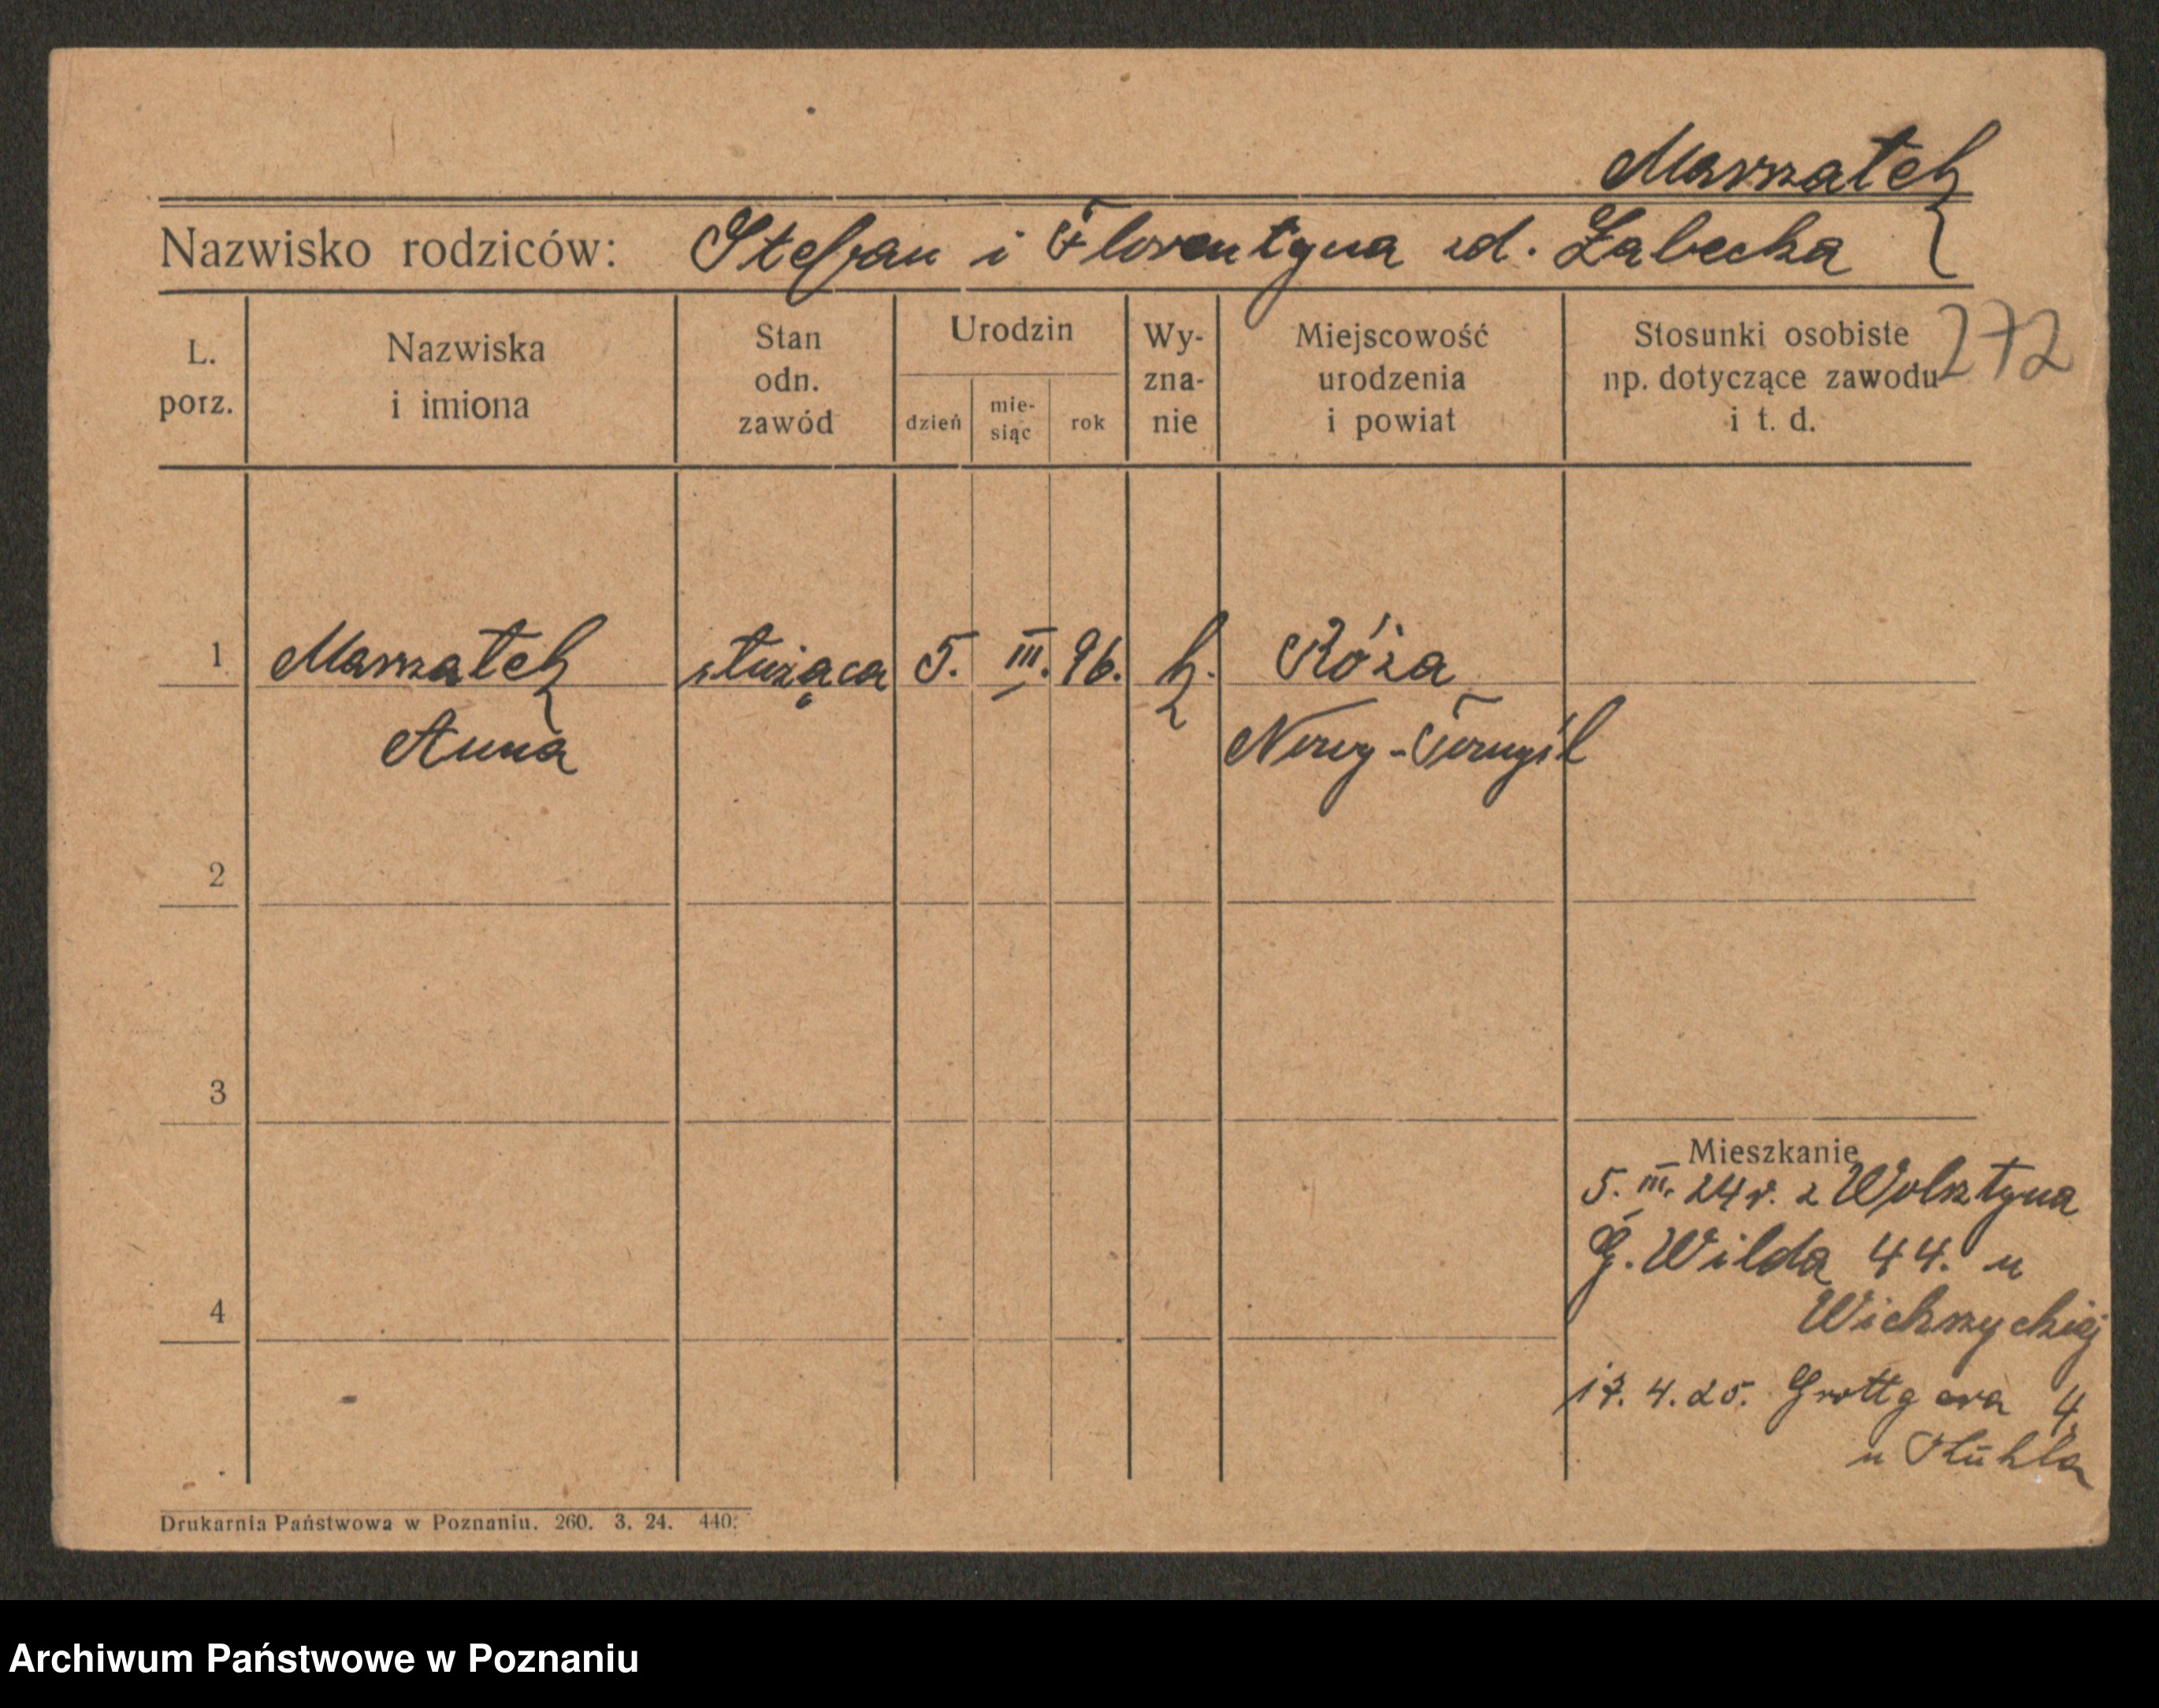 Marszałek
Nazwisko rodziców: Stefan i Florentyna zd. Żabecka
272
L. porz.
Nazwiska i imiona
Stan odn. zawód
Urodzin
dzień
mie-siąc
rok
Wy-zna-nie
Miejscowość urodzenia i powiat
Stosunki osobiste np. dotyczące zawodu i t. d.
1 Marszałek służąca 5. III. 96. k. Róża
Anna Nowy-Tomyśl
2
3
4
Mieszkanie
5. III. 24 r. z Wolsztyna
G. Wilda 44. u
17. 4. 25. Grottgera 4.
u
Drukarnia Państwowa w Poznaniu. 260. 3. 24. 440.
Archiwum Państwowe w Poznaniu